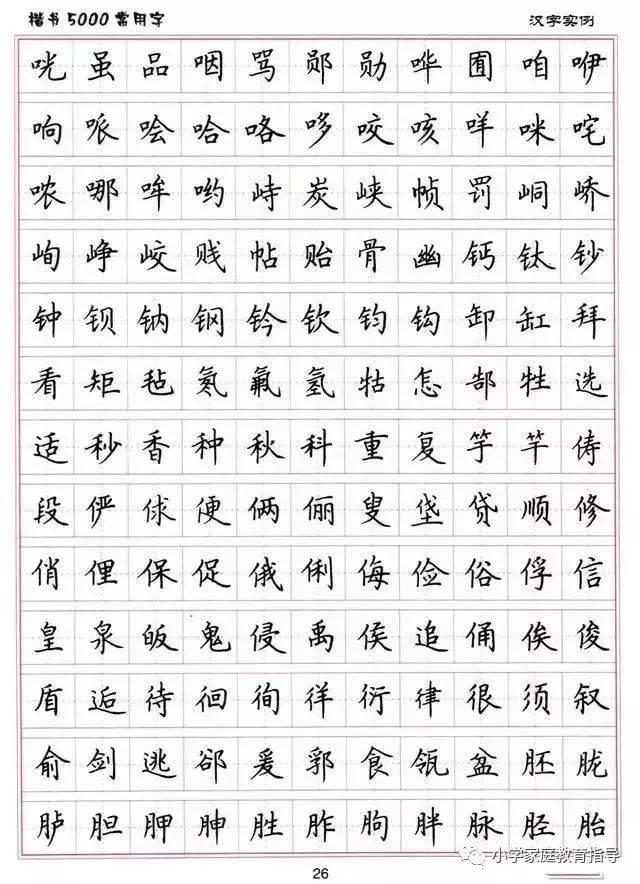 楷书5000常用字 汉字实例
咣 虽 品 咽 骂 郧 勋 哗 囿 咱 咿
响 哌 哙 哈 咯 哆 咬 咳 咩 咪 咤
哝 哪 哞 哟 峙 炭 峡 帧 罚 峒 峤
峋 峥 峧 贱 帖 贻 骨 幽 钙 钛 钞
钟 钡 钠 钢 钤 钦 钧 钩 卸 缸 拜
看 矩 毡 氡 氟 氢 牯 怎 郜 牲 选
适 秒 香 种 秋 科 重 复 竽 竿 俦
段 俨 俅 便 俩 俪 叟 垡 贷 顺 修
俏 俚 保 促 俄 俐 侮 俭 俗 俘 信
皇 泉 皈 鬼 侵 禹 侯 追 俑 俟 俊
盾 逅 待 徊 徇 徉 衍 律 很 须 叙
俞 剑 逃 郤 爰 郛 食 瓴 盆 胚 胧
胪 胆 胛 胂 胜 胙 朐 胖 脉 胫 胎
小学家庭教育指导
26